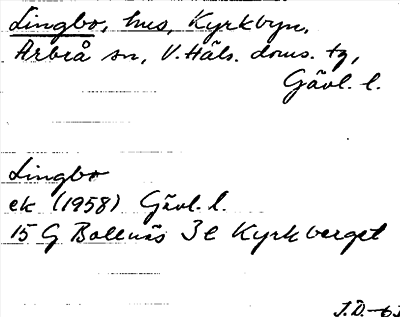 Lingbo, hus, Kyrkbyn,
Arbrå sn, V. Häls. doms. tg,
Gävl. l.
Lingbo
ek (1958) Gävl. l.
15 G Bollnäs 3 e Kyrkberget
J.D.-63